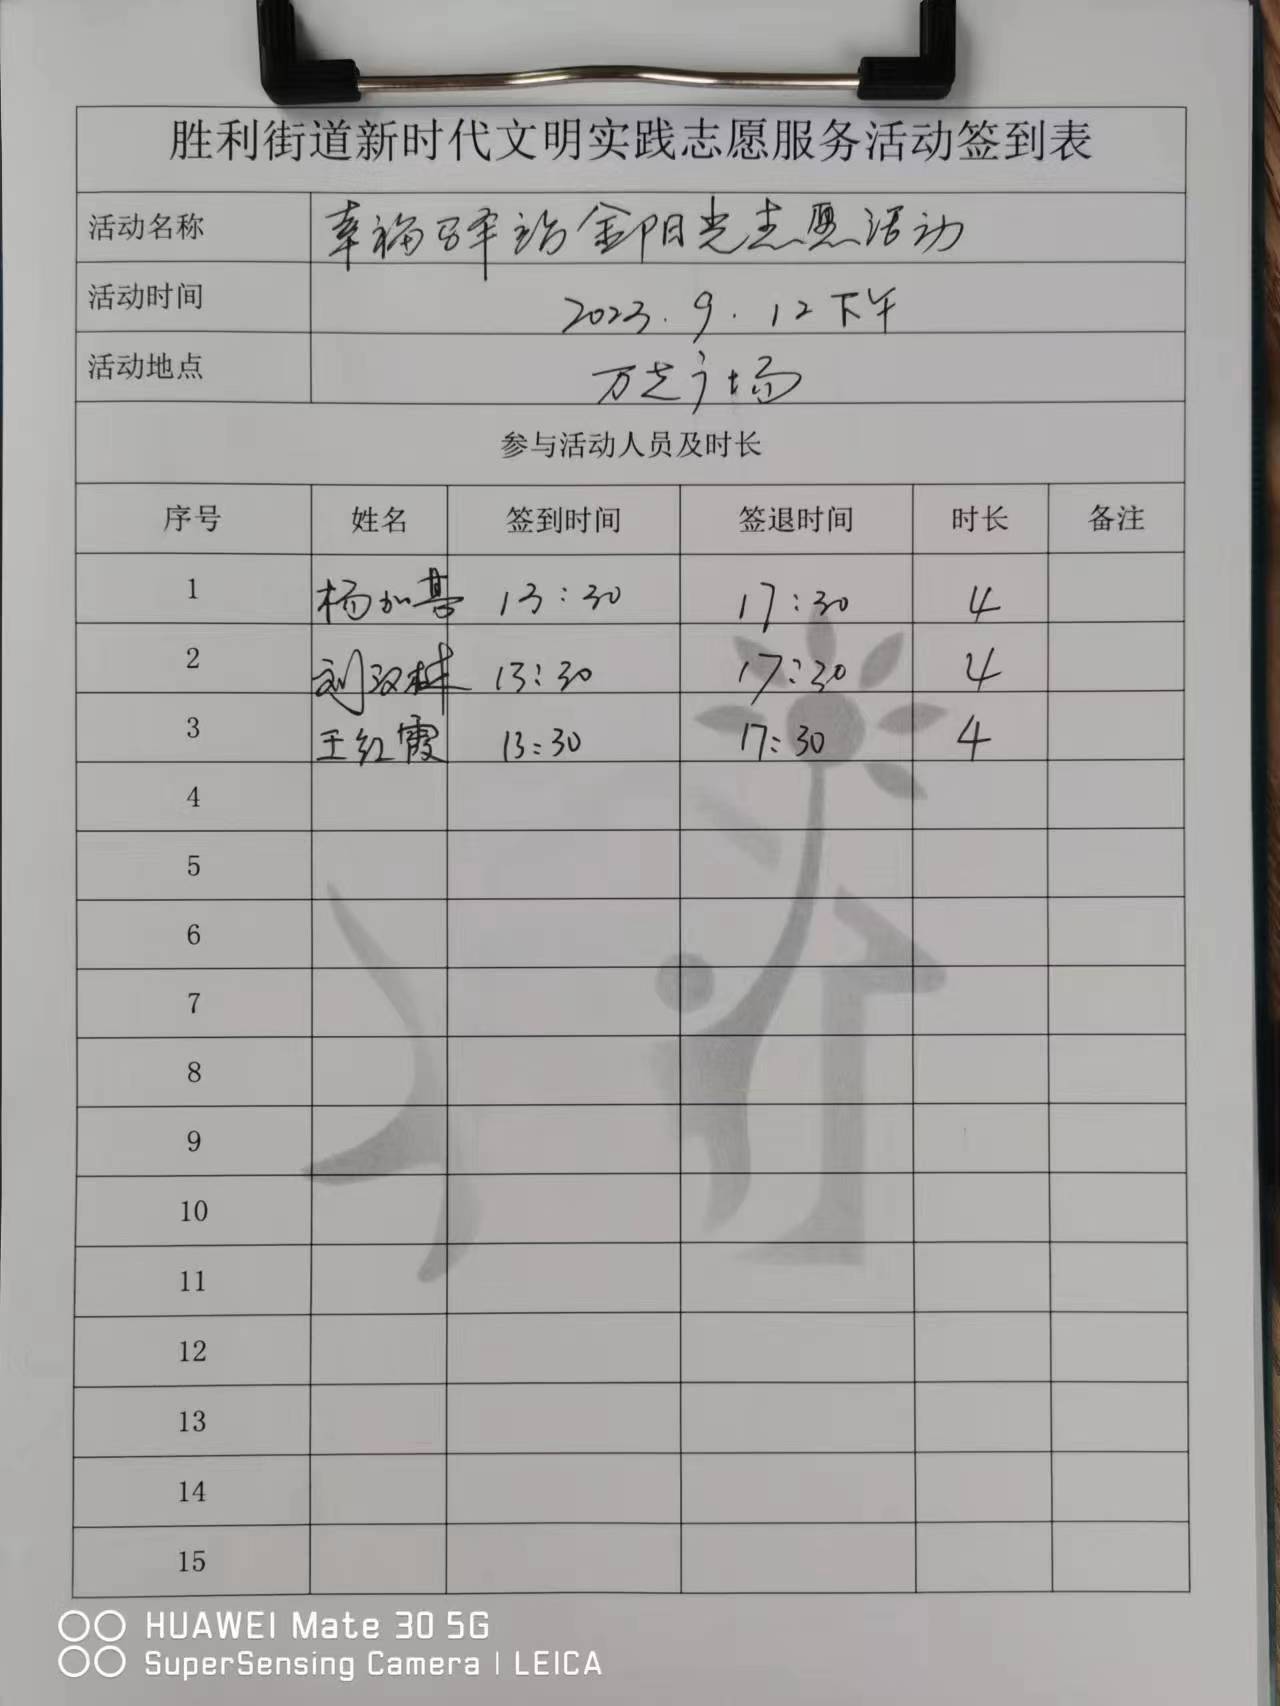 胜利街道新时代文明实践志愿服务活动签到表
活动名称 幸福驿站金阳光志愿活动
活动时间 2023.9.12下午
活动地点 万达广场
参与活动人员及时长
序号 姓名 签到时间 签退时间 时长 备注
1 杨加基 13:30 17:30 4
2 刘汉林 13:30 17:30 4
3 王红霞 13:30 17:30 4
4
5
6
7
8
9
10
11
12
13
14
15
HUAWEI Mate 30 5G
SuperSensing Camera | LEICA